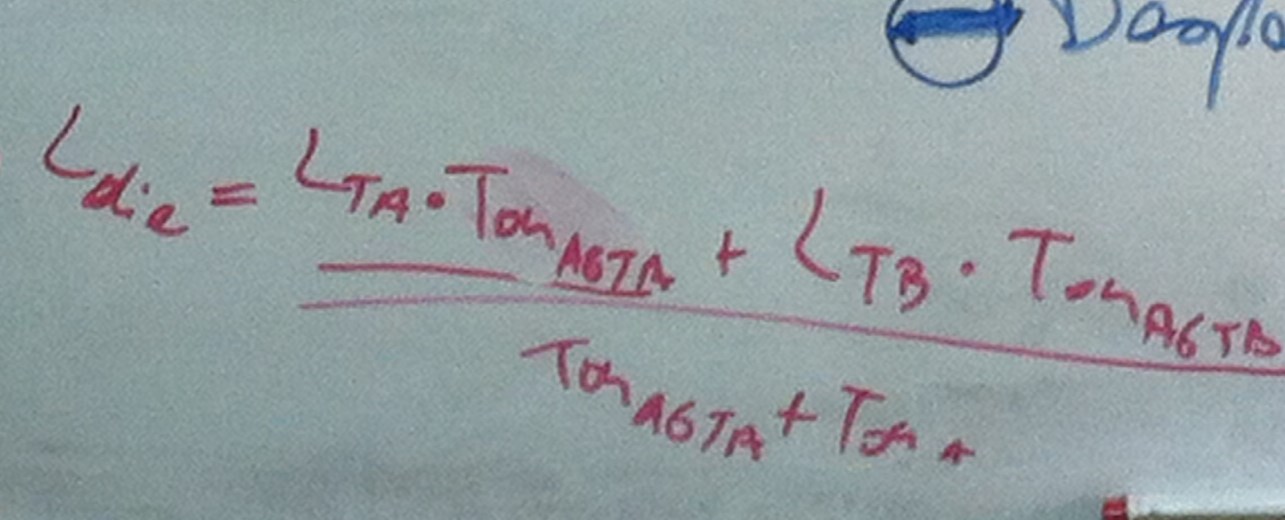 L die = L TA · Ton AGTA + L TB · Ton AGTB
Ton AGTA + Ton A